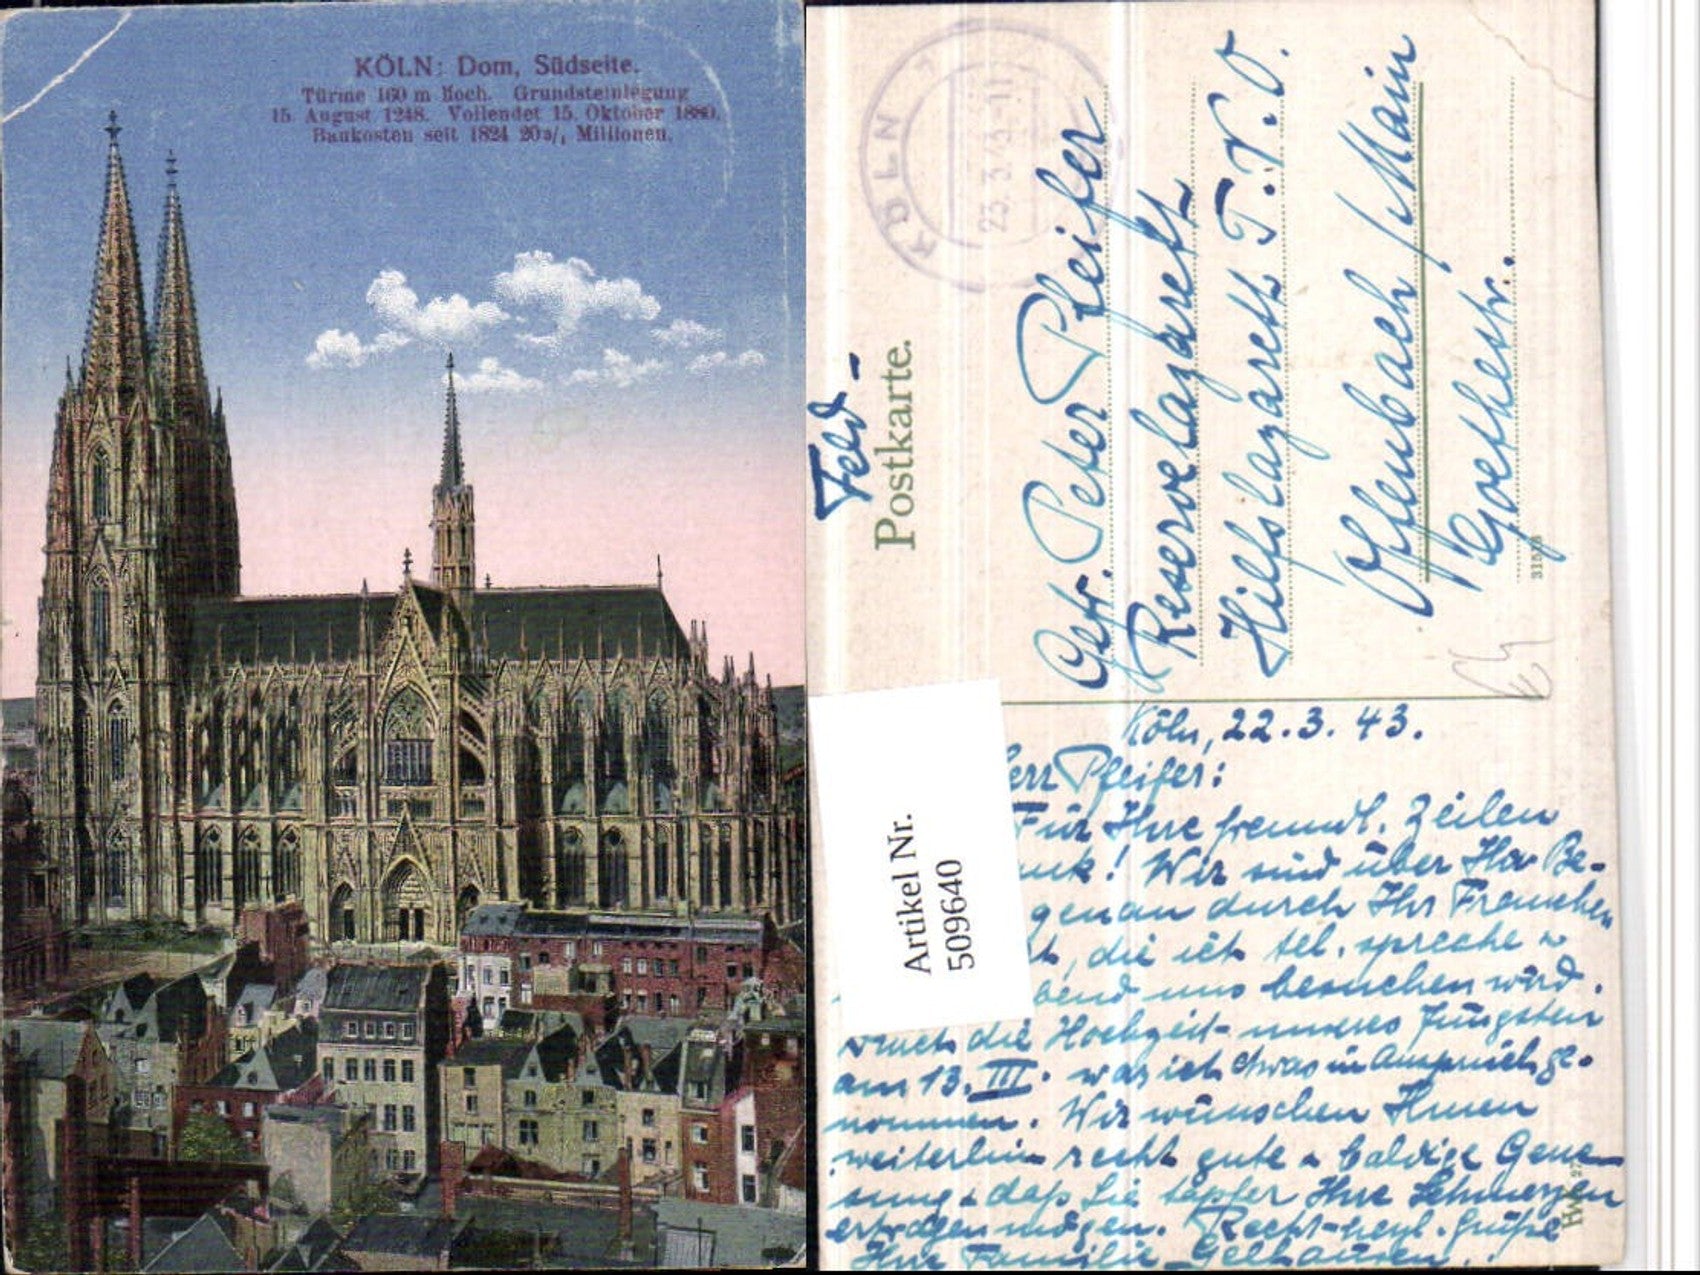 KÖLN: Dom, Südseite.
Türme 160 m hoch. Grundsteinlegung
15. August 1248. Vollendet 15. Oktober 1880.
Baukosten seit 1824 20¾ Millionen.
Feld-
Postkarte.
KÖLN
23.3.43-11
Gefr. Peter Pfeifer
Reservelazarett
Hilfslazarett T.V.O.
Offenbach/Main
Goethestr.
Artikel Nr.
509640
Köln, 22.3.43.
Herr Pfeifer:
Für Ihre freundl. Zeilen
Wir sind über Ihr Be-
genau durch Ihr Frauchen
, die ich tel. spreche u
uns besuchen wird.
die Hochzeit unseres Jüngsten
am 13. III. war ich etwas in Anspruch ge-
nommen. Wir wünschen Ihnen
weiterhin recht gute u baldige Gene-
sung u daß Sie tapfer Ihre Schmerzen
ertragen mögen. Recht herzl. Grüße
Ihre Familie Gelhausen.